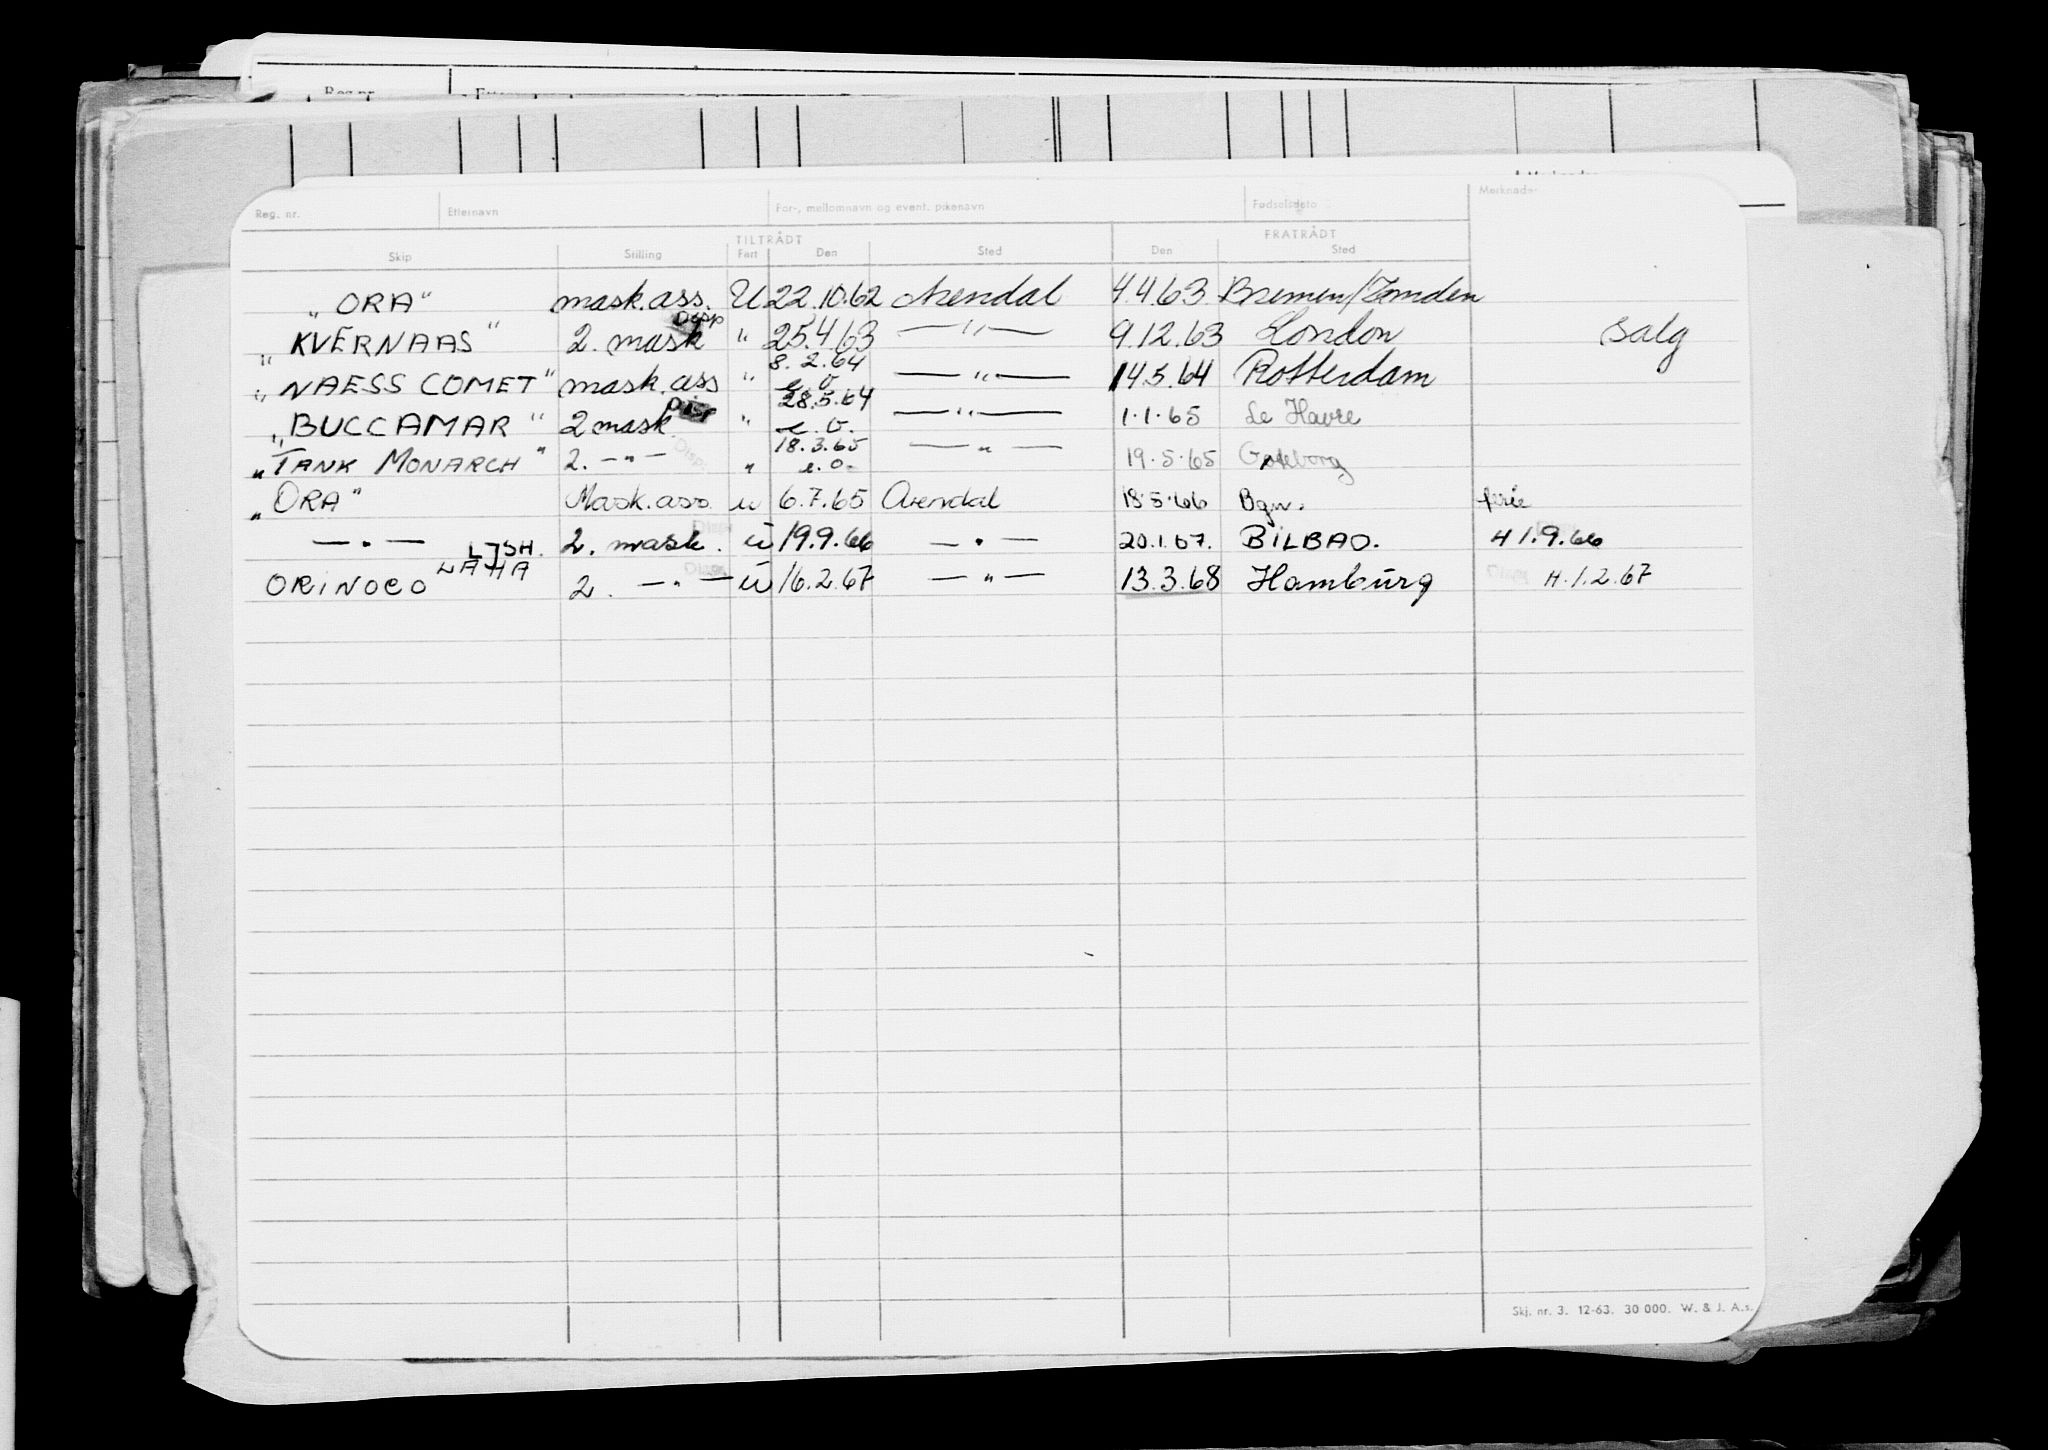 Reg. nr. Etternavn For-, mellomnavn og event. pikenavn Fødselsdato Merknader
TILTRÅDT FRATRÅDT
Skip Stilling Fart Den Sted Den Sted
„ORA" mask.ass. U 22.10.62 Arendal 4.4.63 Bremen/Emden
„KVERNAAS" 2. mask Disp " 25.4.63 —"— 9.12.63 London salg
„NAESS COMET" mask.ass " 8.2.64 e.o. —"— 14.5.64 Rotterdam
„BUCCAMAR" 2 mask Disp " 28.5.64 e.o. —"— 1.1.65 Le Havre
„TANK MONARCH" 2. —"— Disp. " 18.3.65 e.o. —"— 19.5.65 Gøteborg
„ORA" Mask.ass. u 6.7.65 Arendal 18.5.66 Bgn. ferie
—"— 2. mask. Disp u 19.9.66 —"— 20.1.67. BILBAO. H 1.9.66
ORINOCO 2. —"— Disp u 16.2.67 —"— 13.3.68 Hamburg Disp H.1.2.67
Skj. nr. 3. 12-63. 30 000. W. & J. A.s.